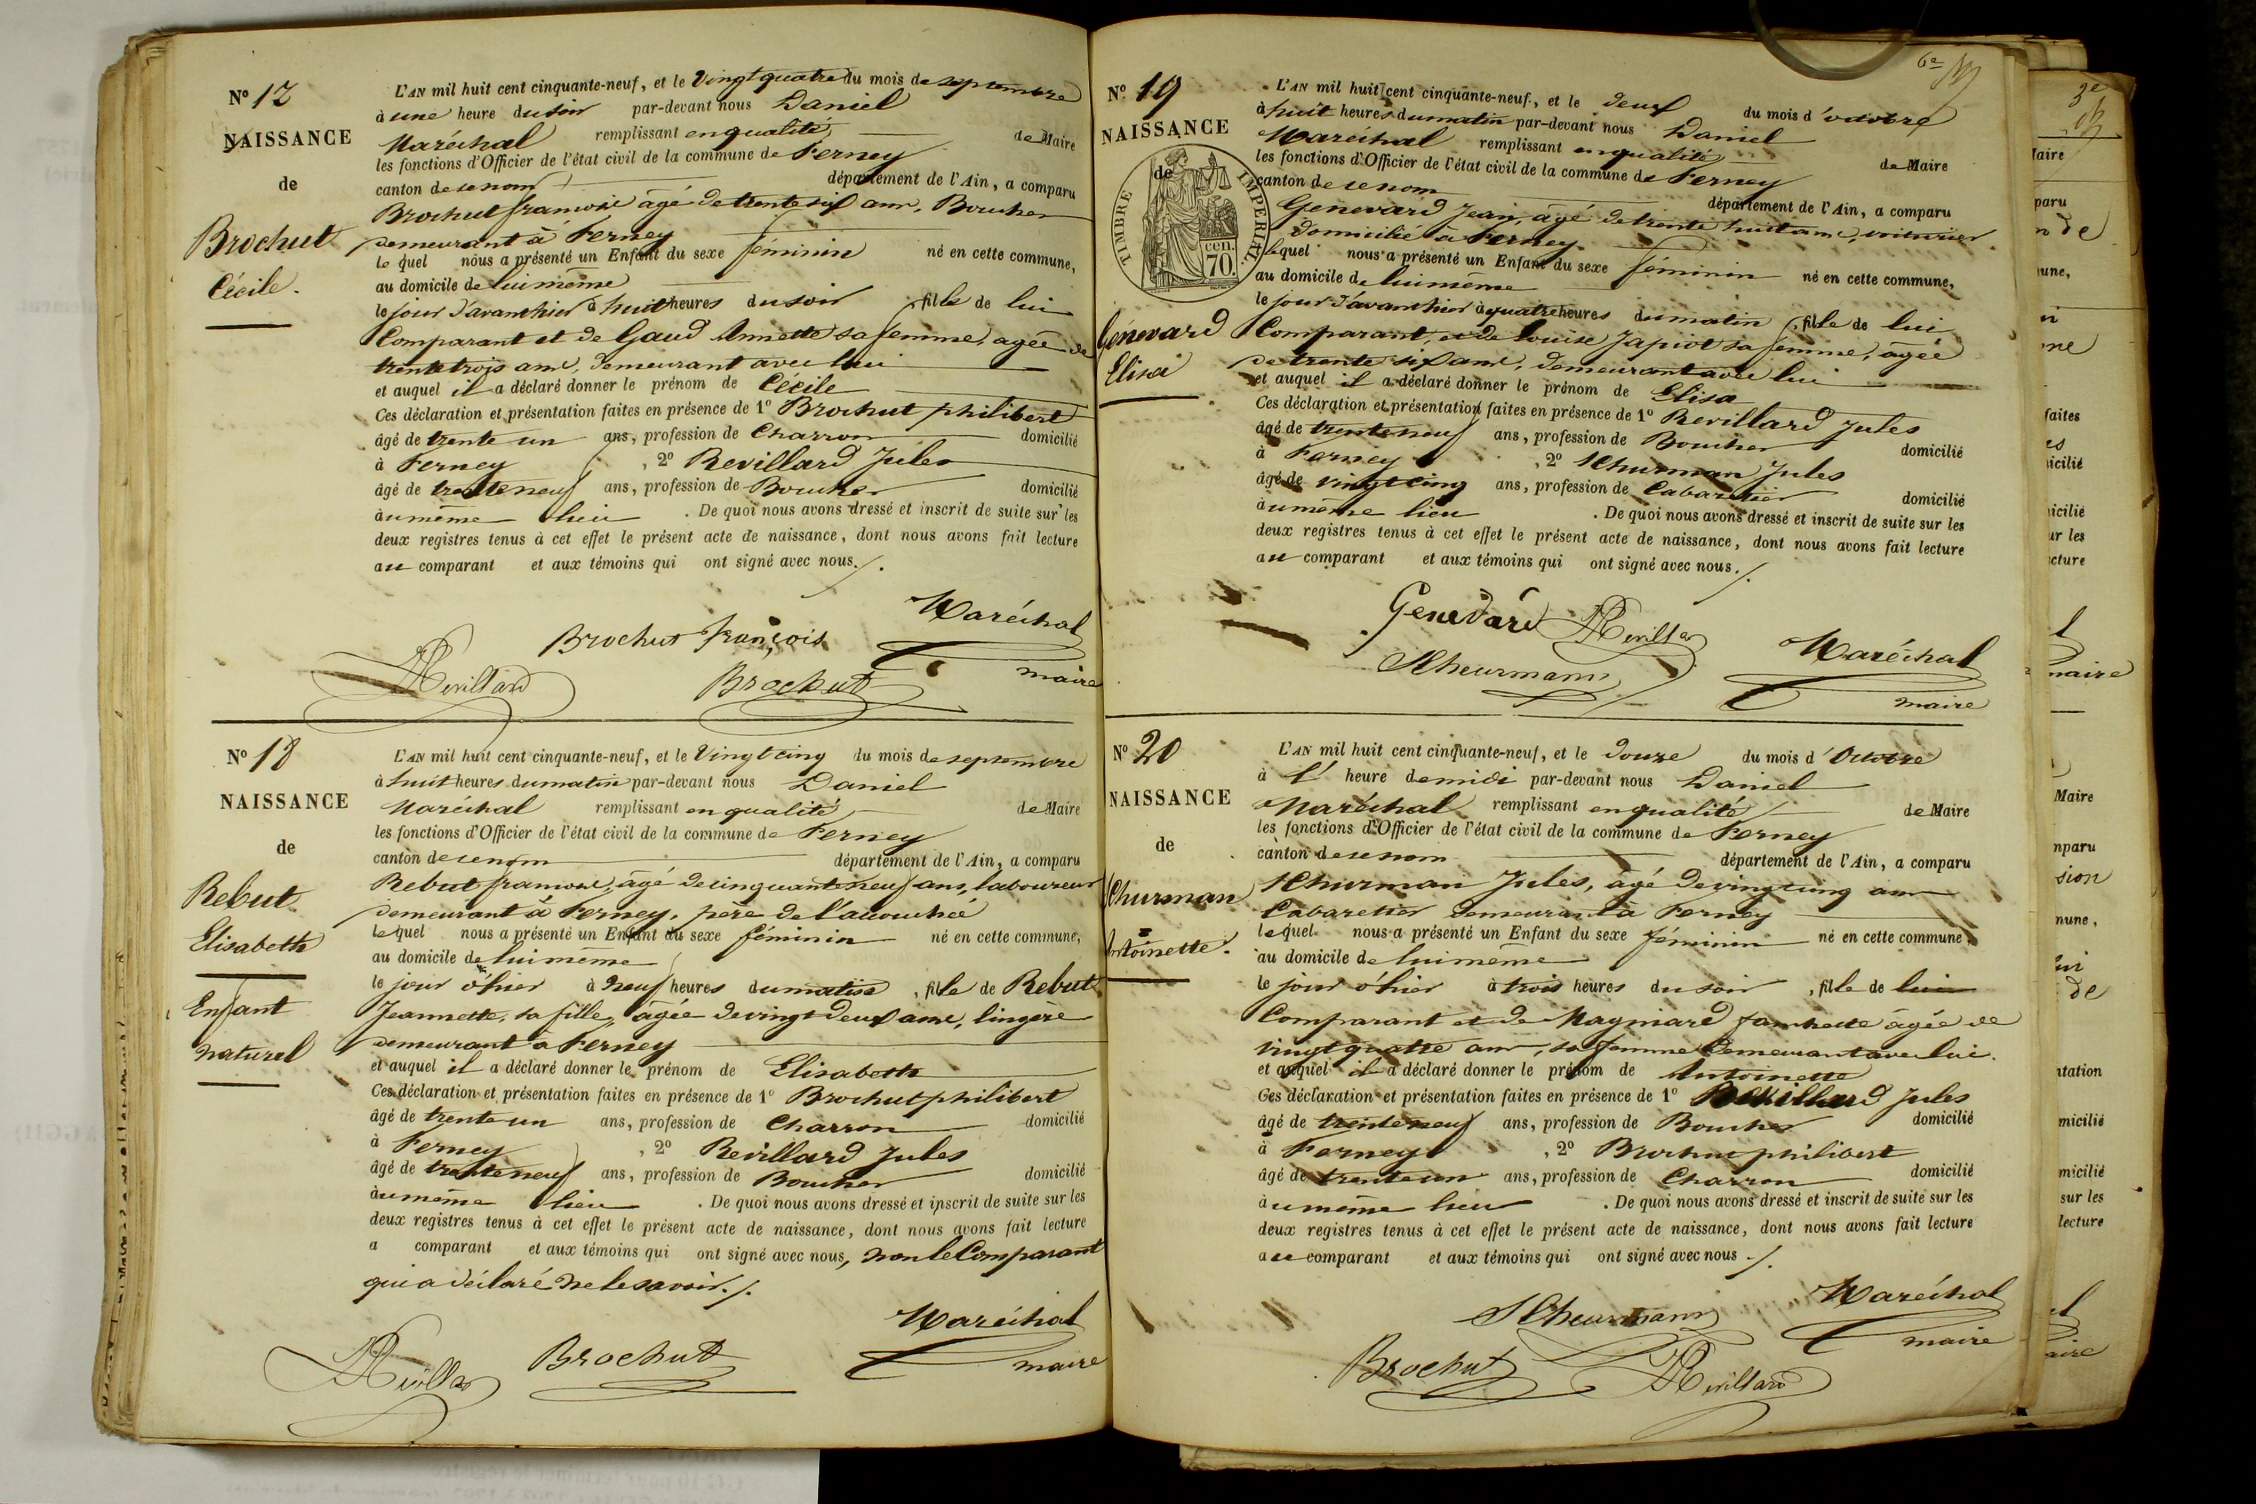 Nº 17
NAISSANCE
de
Brochut
Cécile.
L'AN mil huit cent cinquante-neuf, et le Vingt quatre du mois de septembre
à une heure du soir par-devant nous Daniel
Maréchal remplissant en qualité de Maire
les fonctions d'Officier de l'état civil de la commune de Ferney
canton de ce nom département de l'Ain, a comparu
Brochut françois âgé de trente six ans, Boucher
demeurant à Ferney
lequel nous a présenté un Enfant du sexe féminin né en cette commune,
au domicile de lui même
le jour d'avanthier à huit heures du soir, fille de lui
Comparant et de Gaud Annette sa femme, agée de
trente trois ans, demeurant avec lui
et auquel il a déclaré donner le prénom de Cécile
Ces déclaration et présentation faites en présence de 1º Brochut philibert
âgé de trente un ans, profession de Charron domicilié
à Ferney, 2º Revillard Jules
âgé de trente neuf ans, profession de Boucher domicilié
au même lieu. De quoi nous avons dressé et inscrit de suite sur les
deux registres tenus à cet effet le présent acte de naissance, dont nous avons fait lecture
au comparant et aux témoins qui ont signé avec nous./.
Maréchal
Brochut françois
maire
Revillard
Brochut
Nº 18
NAISSANCE
de
Rebut
Elisabeth
Enfant
naturel
L'AN mil huit cent cinquante-neuf, et le Vingt cinq du mois de septembre
à huit heures du matin par-devant nous Daniel
Maréchal remplissant en qualité de Maire
les fonctions d'Officier de l'état civil de la commune de Ferney
canton de ce nom département de l'Ain, a comparu
Rebut françois, âgé de cinquante neuf ans, laboureur
demeurant à Ferney, père de l'accouchée
lequel nous a présenté un Enfant du sexe féminin né en cette commune,
au domicile de lui même
le jour d'hier à neuf heures du matin, fille de Rebut
Jeannette, sa fille, âgée de vingt deux ans, lingère
demeurant à Ferney
et auquel il a déclaré donner le prénom de Elisabeth
Ces déclaration et présentation faites en présence de 1º Brochut philibert
âgé de trente un ans, profession de Charron domicilié
à Ferney, 2º Revillard Jules
âgé de trente neuf ans, profession de Boucher domicilié
au même lieu. De quoi nous avons dressé et inscrit de suite sur les
deux registres tenus à cet effet le présent acte de naissance, dont nous avons fait lecture
a comparant et aux témoins qui ont signé avec nous, non le Comparant
qui a déclaré ne le savoir./.
Maréchal
Brochut
maire
6e
Nº 19
NAISSANCE
de
TIMBRE IMPERIAL
70 cen.
Génevard
Elisa
L'AN mil huit cent cinquante-neuf, et le deux du mois d'octobre
à huit heures du matin par-devant nous Daniel
Maréchal remplissant en qualité de Maire
les fonctions d'Officier de l'état civil de la commune de Ferney
canton de ce nom département de l'Ain, a comparu
Génevard Jean, âgé de trente huit ans, voiturier
domicilié à Ferney.
lequel nous a présenté un Enfant du sexe féminin né en cette commune,
au domicile de lui même
le jour d'avanthier à quatre heures du matin, fille de lui
Comparant, et de Louise Japiot sa femme, âgée
de trente six ans, demeurant avec lui
et auquel il a déclaré donner le prénom de Elisa
Ces déclaration et présentation faites en présence de 1º Revillard Jules
âgé de trente neuf ans, profession de Boucher domicilié
à Ferney, 2º Schurman Jules
âgé de vingt cinq ans, profession de Cabaretier domicilié
au même lieu. De quoi nous avons dressé et inscrit de suite sur les
deux registres tenus à cet effet le présent acte de naissance, dont nous avons fait lecture
au comparant et aux témoins qui ont signé avec nous./.
Genevard
Scheurmann
Maréchal
maire
Nº 20
NAISSANCE
de
Schurman
Antoinette.
L'AN mil huit cent cinquante-neuf, et le douze du mois d'Octobre
à l'heure de midi par-devant nous Daniel
Maréchal remplissant en qualité de Maire
les fonctions d'Officier de l'état civil de la commune de Ferney
canton de ce nom département de l'Ain, a comparu
Schurman Jules, âgé de vingt cinq ans
Cabaretier demeurant à Ferney
lequel nous a présenté un Enfant du sexe féminin né en cette commune,
au domicile de lui même
le jour d'hier à trois heures du soir, fille de lui
Comparant et de Magniard âgée de
vingt quatre ans, sa femme demeurant avec lui.
et auquel il a déclaré donner le prénom de Antoinette
Ces déclaration et présentation faites en présence de 1º Revillard Jules
âgé de trente neuf ans, profession de Boucher domicilié
à Ferney, 2º Brochut philibert
âgé de trente un ans, profession de Charron domicilié
au même lieu. De quoi nous avons dressé et inscrit de suite sur les
deux registres tenus à cet effet le présent acte de naissance, dont nous avons fait lecture
au comparant et aux témoins qui ont signé avec nous./.
Scheurmann
Maréchal
maire
Brochut
Revillard